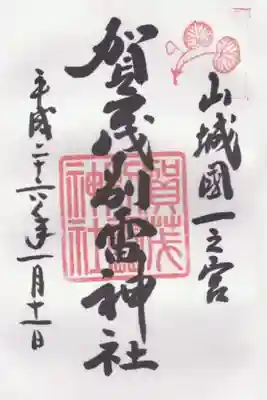 山城國一之宮
賀茂別雷神社
平成二十六年一月十一日
賀茂
別雷
神社